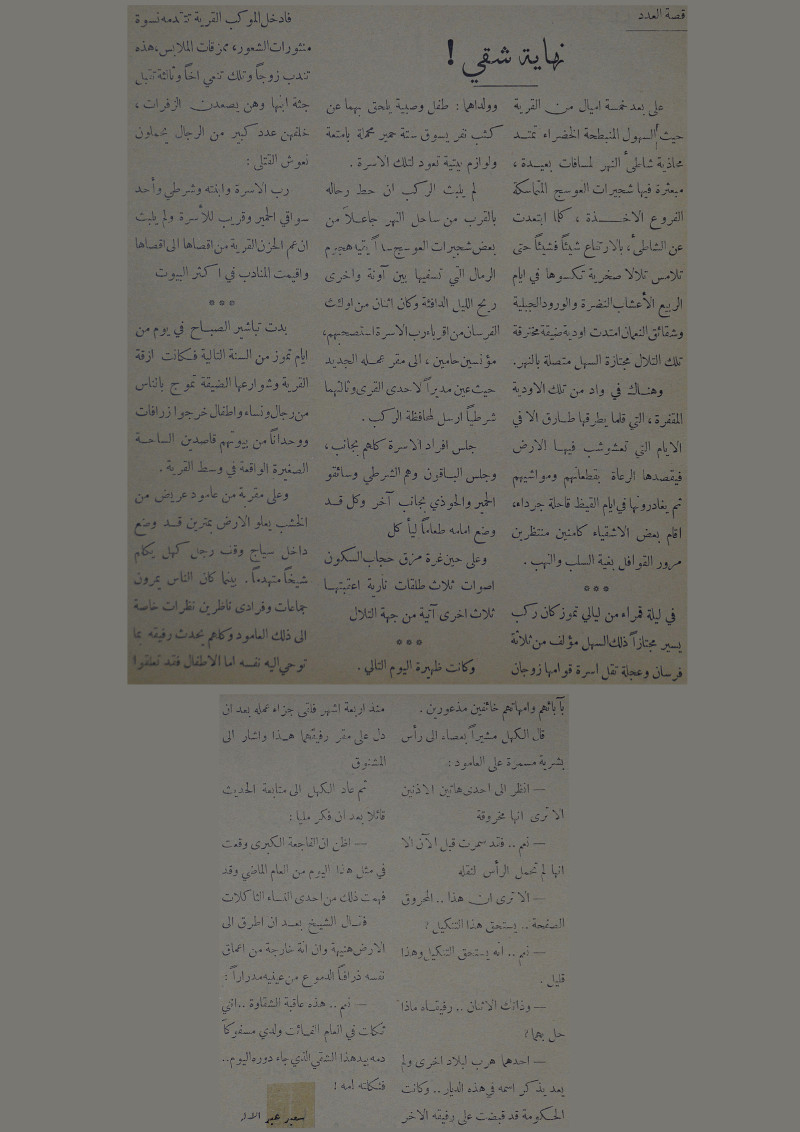 قصة العدد
نهاية شقي !
على بعد خمسة اميال من القرية
حيث السهول المنبطحة الخضراء تمتد
محاذية شاطئ النهر لمسافات بعيدة ،
مبعثرة فيها شجيرات العوسج المتماسكة
الفروع الاخـــذة ، كلما ابتعدت
عن الشاطئ، بالارتفاع شيئاً فشيئاً حتى
تلامس تلالا صخرية تكسوها في ايام
الربيع الأعشاب النضرة والورود الجبلية
وشقائق النعمان امتدت اودية ضيقة مخترقة
تلك التلال مجتازة السهل متصلة بالنهر.
وهناك في واد من تلك الاودية
المقفرة ، التي قلما يطرقها طارق الا في
الايام التي تعشوشب فيها الارض
فيقصدها الرعاة بقطعانهم ومواشيهم
ثم يغادرونها في ايام القيظ قاحلة جرداء،
اقام بعض الاشقياء كامنين منتظرين
مرور القوافل بغية السلب والنهب .
في ليلة قمراء من ليالي تموز كان ركب
يسير مجتازاً ذلك السهل مؤلف من ثلاثة
فرسان وعجلة تقل اسرة قوامها زوجان
وولداهما : طفل وصبية يلحق بهما عن
كثب نفر يسوق ستة حمير محملة بامتعة
ولوازم بيتية تعود لتلك الاسرة .
لم يلبث الركب ان حط رحاله
بالقرب من ساحل النهر جاعلاً من
بعض شجيرات العوسج سداً يقيه هجوم
الرمال التي تسفيها بين آونة واخرى
ريح الليل الدافئة وكان اثنان من اولئك
الفرسان من اقرباء رب الاسرة استصحبهم،
مؤنسين حامين ، الى مقر عمله الجديد
حيث عين مديراً لاحدى القرى وثالثهما
شرطياً ارسل لمحافظة الركب .
جلس افراد الاسرة كلهم بجانب ،
وجلس الباقون وهم الشرطي وسائقو
الحمير والحوذي بجانب آخر وكل قد
وضع امامه طعاماً ليأكل
وعلى حين غرة مزق حجاب السكون
اصوات ثلاث طلقات نارية اعقبتها
ثلاث اخرى آتية من جهة التلال
وكانت ظهيرة اليوم التالي .
فادخل الموكب القرية تتقدمه نسوة
منثورات الشعور، ممزقات الملابس، هذه
تندب زوجاً وتلك تنعي اخاً وثالثة تقبل
جثة ابنها وهن يصعدن الزفرات ،
خلفهن عدد كبير من الرجال يحملون
نعوش القتلى :
رب الاسرة وابنته وشرطي وأحد
سواقي الحمير وقريب للأسرة ولم يلبث
ان عم الحزن القرية من اقصاها الى اقصاها
واقيمت المنادب في اكثر البيوت
بدت تباشير الصباح في يوم من
ايام تموز من السنة التالية فكانت ازقة
القرية وشوارعها الضيقة تموج بالناس
من رجال ونساء واطفال خرجوا زرافات
ووحداناً من بيوتهم قاصدين الساحة
الصغيرة الواقعة في وسط القرية .
وعلى مقربة من عامود عريض من
الخشب يعلو الارض بمترين قد وضع
داخل سياج وقف رجل كهل يكلم
شيخاً متهدماً . بينما كان الناس يمرون
جماعات وفرادى ناظرين نظرات خاصة
الى ذلك العامود وكلهم يحدث رفيقه بما
توحي اليه نفسه اما الاطفال فقد تعلقوا
بآبائهم وامهاتهم خائفين مذعورين .
قال الكهل مشيراً بعصاه الى رأس
بشرية مسمرة على العامود :
— انظر الى احدى هاتين الاذنين
الا ترى انها مخروقة
— نعم .. فقد سمرت قبل الآن الا
انها لم تحمل الرأس لثقله
— الا ترى ان هذا .. المحروق
الصفحة .. يستحق هذا التنكيل ؟
— نعم .. انه يستحق التنكيل وهذا
قليل .
— وذانك الاثنان .. رفيقاه ماذا
حل بهما ؟
— احدهما هرب لبلاد اخرى ولم
يعد يذكر اسمه في هذه الديار .. وكانت
الحكومة قد قبضت على رفيقه الاخر
منذ اربعة اشهر فلقي جزاء عمله بعد ان
دل على مقر رفيقهما هذا واشار الى
المشنوق
ثم عاد الكهل الى متابعة الحديث
قائلا بعد ان فكر مليا :
— اظن ان الفاجعة الكبرى وقعت
في مثل هذا اليوم من العام الماضي وقد
فهمت ذلك من احدى النساء الثاكلات
فقال الشيخ بعد ان اطرق الى
الارض هنيهة وان انة خارجة من اعماق
نفسه ذرافاً الدموع من عينيه مدراراً :
— نعم .. هذه عاقبة الشقاوة .. انني
ثكلت في العام الفائت ولدي مسفوكاً
دمه بيد هذا الشقي الذي جاء دوره اليوم ..
فثكلته امه !